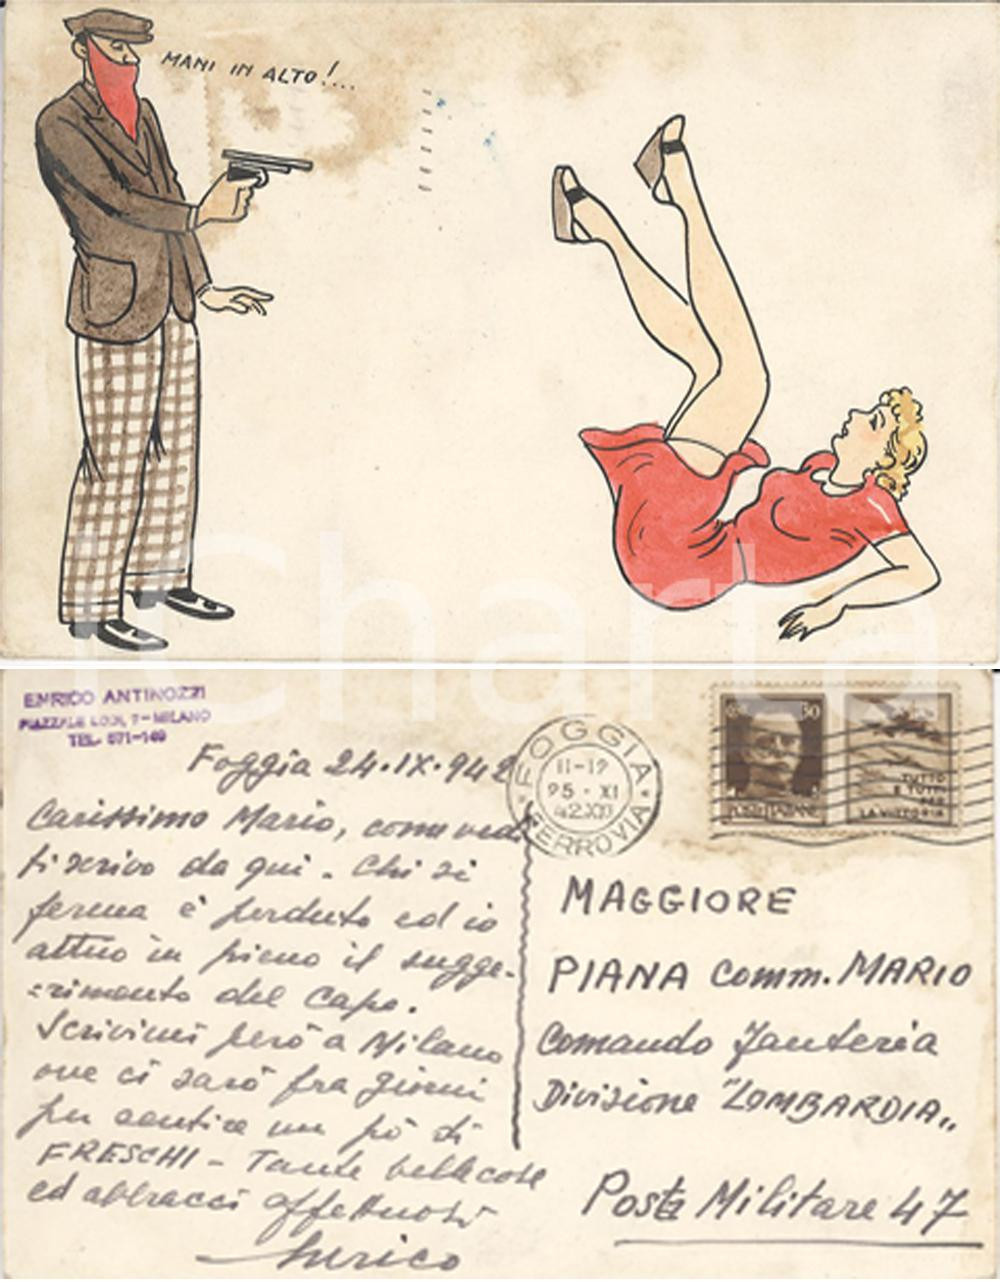 MANI IN ALTO!...
ENRICO ANTINOZZI
PIAZZALE LODI, 7 - MILANO
TEL. 571-149
Foggia 24.IX.942
Carissimo Mario, come vedi
ti scrivo da qui. Chi si
ferma è perduto ed io
attuo in pieno il sugge-
=rimento del Capo.
Scrivimi però a Milano
ove ci sarò fra giorni
per sentire un pò di
FRESCHI - Tante belle cose
ed abbracci affettuosi
Enrico
FOGGIA
11-12
25 · XI
42XXI
FERROVIA
50
POSTE ITALIANE
TUTTO
E TUTTI
PER
LA VITTORIA
MAGGIORE
PIANA Comm. MARIO
Comando Fanteria
Divisione "LOMBARDIA„
Posta Militare 47
iCharta